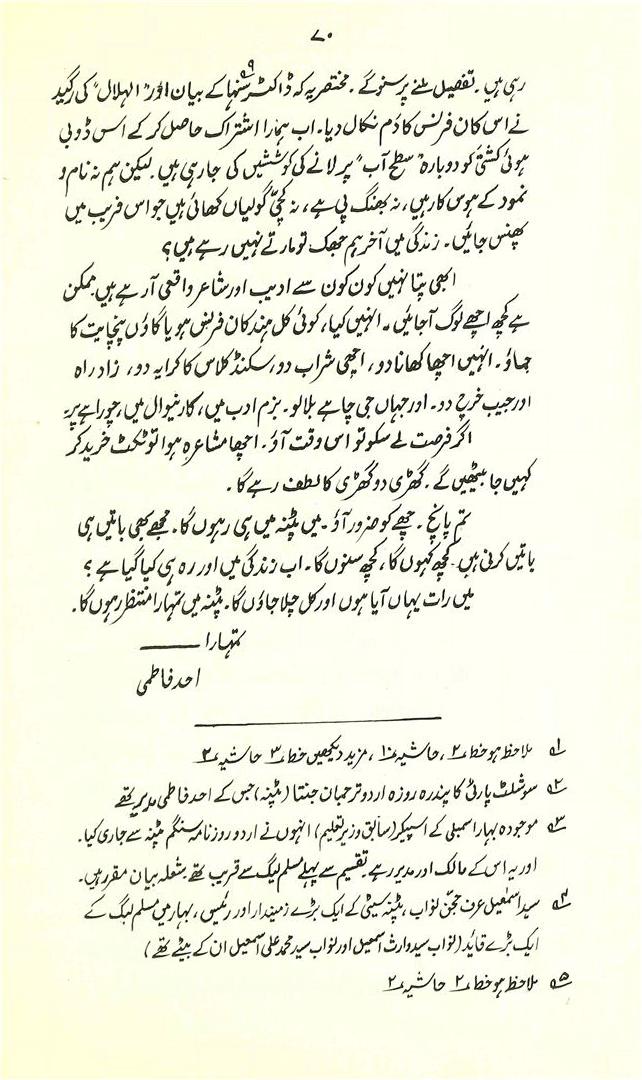 ۷۰
رہی ہیں۔ تفصیل ملنے پر سنو گے۔ مختصر یہ کہ ڈاکٹر سنہا۹ کے بیان اور "الہلال" کی رگید
نے اس کان فرنس کا دَم نکال دیا۔ اب ہمارا اشتراک حاصل کر کے اس ڈوبی
ہوئی کشتی کو دوبارہ "سطحِ آب" پر لانے کی کوششیں کی جا رہی ہیں۔ لیکن ہم نہ نام و
نمود کے ہوس کار ہیں، نہ بھنگ پی ہے، نہ کچی گولیاں کھائی ہیں جو اس فریب میں
پھنس جائیں۔ زندگی میں آخر ہم جھک تو مارتے نہیں رہے ہیں؟
ابھی پتا نہیں کون کون سے ادیب اور شاعر واقعی آرہے ہیں ممکن
ہے کچھ اچھے لوگ آجائیں۔ انہیں کیا، کوئی کل ہند کان فرنس ہو یا گاؤں پنچایت کا
جماؤ۔ انہیں اچھا کھانا دو، اچھی شراب دو، سکنڈ کلاس کا کرایہ دو، زادِ راہ
اور جیب خرچ دو۔ اور جہاں جی چاہے بلا لو۔ بزم ادب میں، کارنیوال میں، چوراہے پر۔
اگر فرصت لے سکو تو اس وقت آؤ۔ اچھا مشاعرہ ہوا تو ٹکٹ خرید کر
کہیں جا بیٹھیں گے۔ گھڑی دو گھڑی کا لطف رہے گا۔
تم پانچ۔ چھے کو ضرور آؤ۔ میں پٹنہ میں ہی رہوں گا۔ مجھے بھی باتیں ہی
باتیں کرنی ہیں۔ کچھ کہوں گا، کچھ سنوں گا۔ اب زندگی میں اور رہ ہی کیا گیا ہے؟
میں رات یہاں آیا ہوں اور کل چلا جاؤں گا۔ پٹنہ میں تمہارا منتظر رہوں گا۔
تمہارا ———
احمد فاطمی
۱ ملاحظہ ہو خط ۲، حاشیہ ۱۰، مزید دیکھیں خط ۳ حاشیہ ۲
۲ سوشلسٹ پارٹی کا پندرہ روزہ اردو ترجمان جنتا (پٹنہ) جس کے احمد فاطمی مدیر تھے
۳ موجودہ بہار اسمبلی کے اسپیکر (سابق وزیر تعلیم) انہوں نے اردو روزنامہ سنگم پٹنہ سے جاری کیا۔
اور یہ اس کے مالک اور مدیر رہے۔ تقسیم سے پہلے مسلم لیگ سے قریب تھے۔ شعلہ بیان مقرر ہیں۔
۴ سید اسمٰعیل عرف جھجّن نواب، پٹنہ سیٹی کے ایک بڑے زمیندار اور رئیس، بہار میں مسلم لیگ کے
ایک بڑے قائد (نواب سید وارث اسمٰعیل اور نواب سید محمد علی اسمٰعیل ان کے بیٹے تھے)
۵ ملاحظہ ہو خط ۲ حاشیہ ۲